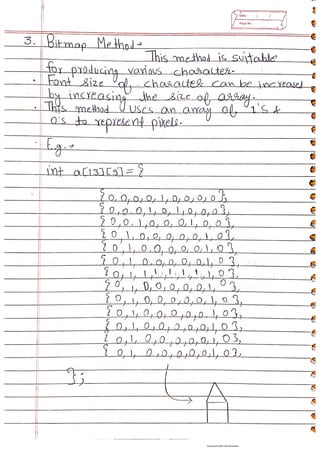 Date / /
Page No.
3. Bitmap Method →
This method is suitable
for producing various character.
• Font size of character can be increased
by increasing the size of array.
• This method uses an array of 1's &
0's to represent pixels.
E.g. →
int a[13][9] = {
{0,0,0,0,1,0,0,0,0},
{0,0,0,1,0,1,0,0,0},
{0,0,1,0,0,0,1,0,0},
{0,1,0,0,0,0,0,1,0},
{0,1,0,0,0,0,0,1,0},
{0,1,0,0,0,0,0,1,0},
{0,1,1,1,1,1,1,1,0},
{0,1,0,0,0,0,0,1,0},
{0,1,0,0,0,0,0,1,0},
{0,1,0,0,0,0,0,1,0},
{0,1,0,0,0,0,0,1,0},
{0,1,0,0,0,0,0,1,0},
{0,1,0,0,0,0,0,1,0},
};
Scanned with CamScanner